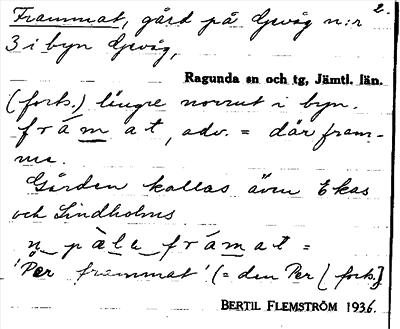 2.
Frammat, gård på Gevåg n:r
3 i byn Gevåg,
Ragunda sn och tg, Jämtl. län.
(forts.) längre norrut i byn.
frámat, adv. = där fram-
me.
Gården kallas även Ekas
och Lindholms
n pàle frámat =
'Per frammat' (= den Per (forts.)
BERTIL FLEMSTRÖM 1936.